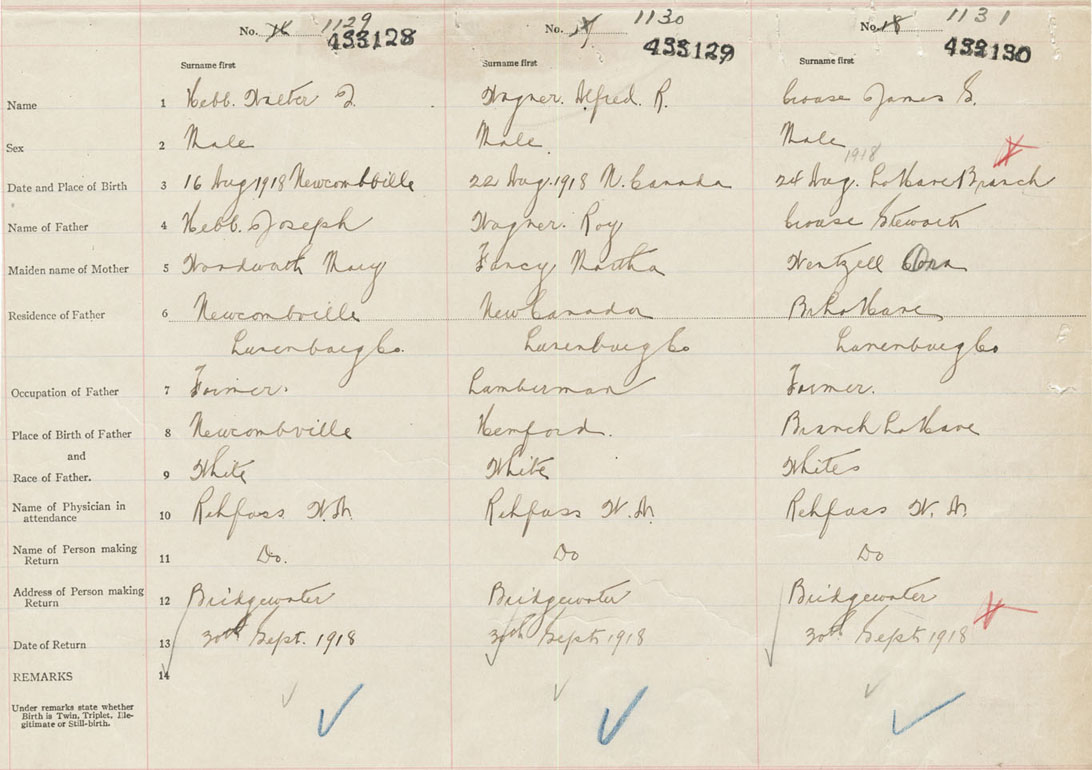 No. 16 1129 No. 17 1130 No. 18 1131
433128 433129 433130
Surname first Surname first Surname first
Name 1 Hebb. Walter J. Wagner. Alfred. R. Crouse James S.
Sex 2 Male Male. Male
1918
Date and Place of Birth 3 16 Aug 1918 Newcombville 22 Aug. 1918 N. Canada 24 Aug. LaHave Branch
Name of Father 4 Hebb. Joseph Wagner. Roy Crouse Stewart
Maiden name of Mother 5 Woodworth Mary Fancy Martha Wentzell
Residence of Father 6 Newcombville New Canada Br LaHave
Lunenburg Co. Lunenburg Co Lunenburg Co
Occupation of Father 7 Farmer. Lumberman Farmer.
Place of Birth of Father 8 Newcombville Hemford. Branch LaHave
and
Race of Father. 9 White White Whites
Name of Physician in
attendance 10 Rehfuss W. N. Rehfuss W. N. Rehfuss W. N.
Name of Person making
Return 11 Do. Do Do
Address of Person making
Return 12 Bridgewater Bridgewater Bridgewater
Date of Return 13 30th Sept. 1918 30th Sept 1918 30th Sept 1918
REMARKS 14
Under remarks state whether
Birth is Twin, Triplet, Ille-
gitimate or Still-birth.